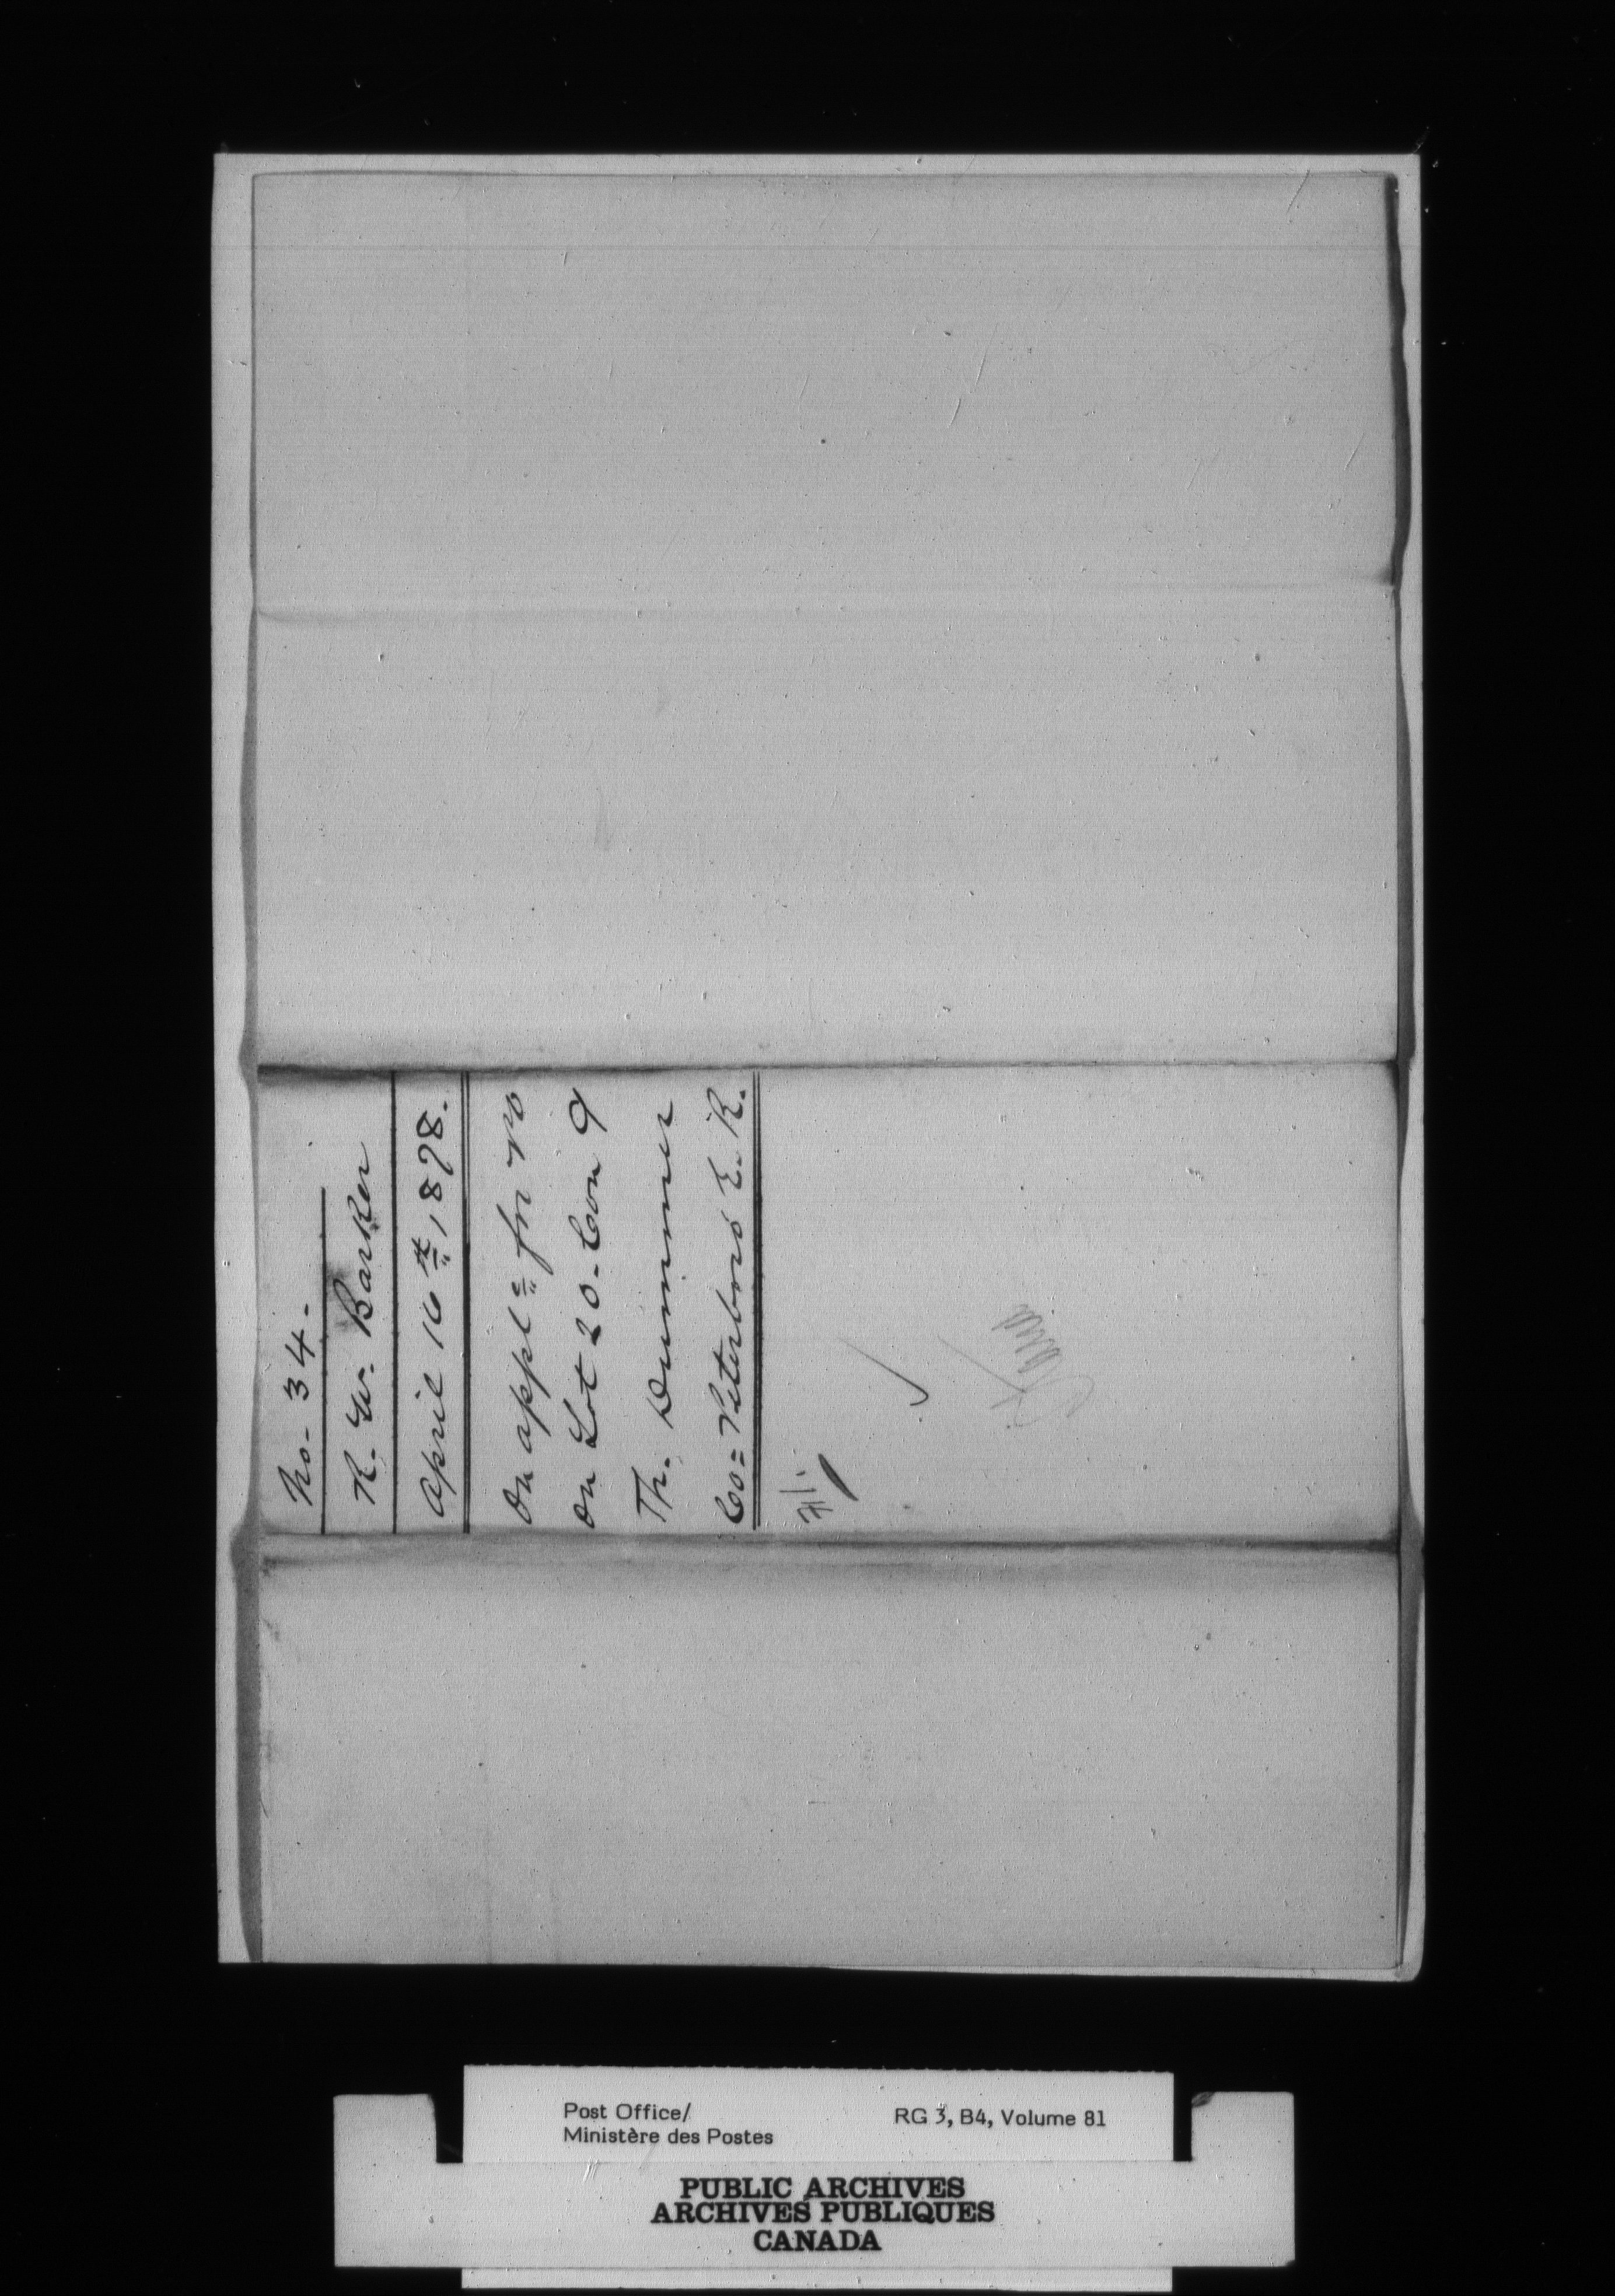 No- 34-
R. W. Barker
April 16th, 1878.
On applc for PO
on Lot 20 - Con 9
Th. Dummer
Co= Peterboro E. R.
Post Office/
Ministère des Postes
RG 3, B4, Volume 81
PUBLIC ARCHIVES
ARCHIVES PUBLIQUES
CANADA